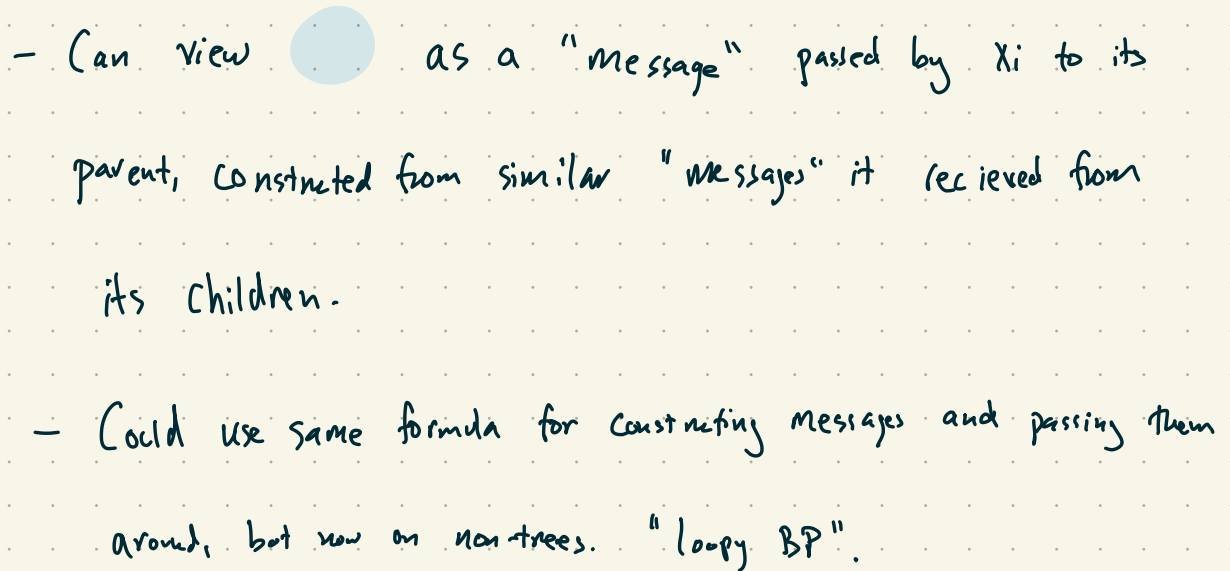 - Can view as a "message" passed by Xi to its
parent, constructed from similar "messages" it recieved from
its children.
- Could use same formula for constructing messages and passing them
around, but now on non-trees. "loopy BP".